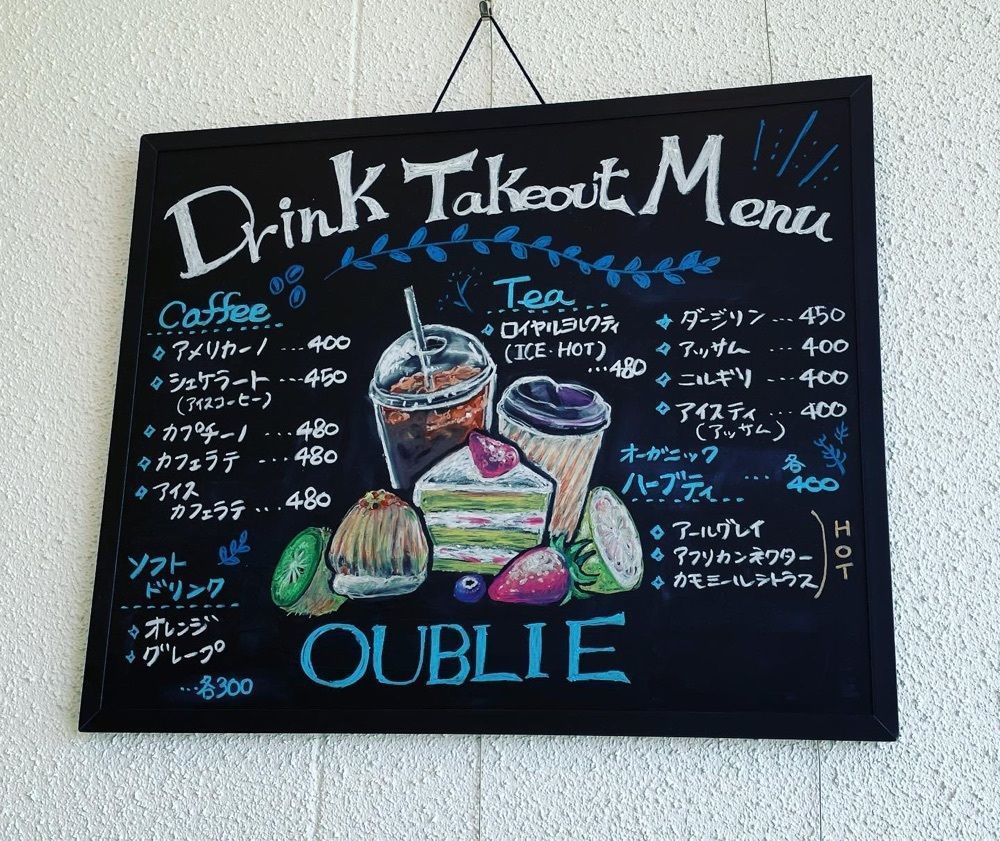 Drink Takeout Menu
Caffee
アメリカーノ ...400
シェケラート ...450
(アイスコーヒー)
カプチーノ ...480
カフェラテ ...480
アイス
カフェラテ ...480
ソフト
ドリンク
オレンジ
グレープ
...各300
Tea
ロイヤルミルクティ
(ICE・HOT)
...480
ダージリン ...450
アッサム ...400
ニルギリ ...400
アイスティ ...400
(アッサム)
オーガニック
ハーブティ ...各400
アールグレイ
アフリカンネクター
カモミールシトラス
HOT
OUBLIE